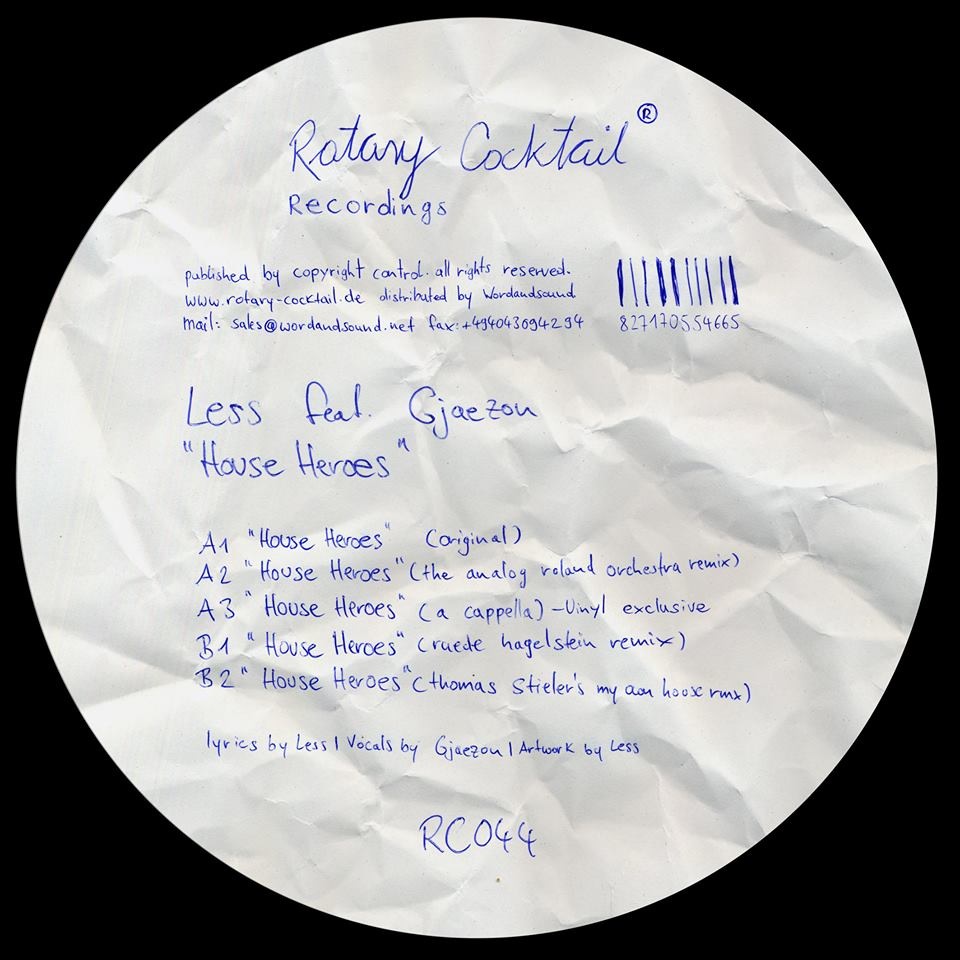 Rotary Cocktail ®
Recordings
published by copyright control. all rights reserved.
www.rotary-cocktail.de distributed by Wordandsound
mail: sales@wordandsound.net fax:+494043094294
827170554665
Less feat. Gjaezon
"House Heroes"
A1 "House Heroes" (original)
A2 "House Heroes" (the analog roland orchestra remix)
A3 "House Heroes" (a cappella) - Vinyl exclusive
B1 "House Heroes" (ruede hagelstein remix)
B2 "House Heroes" (thomas Stieler's my house rmx)
lyrics by Less | Vocals by Gjaezon | Artwork by Less
RC044